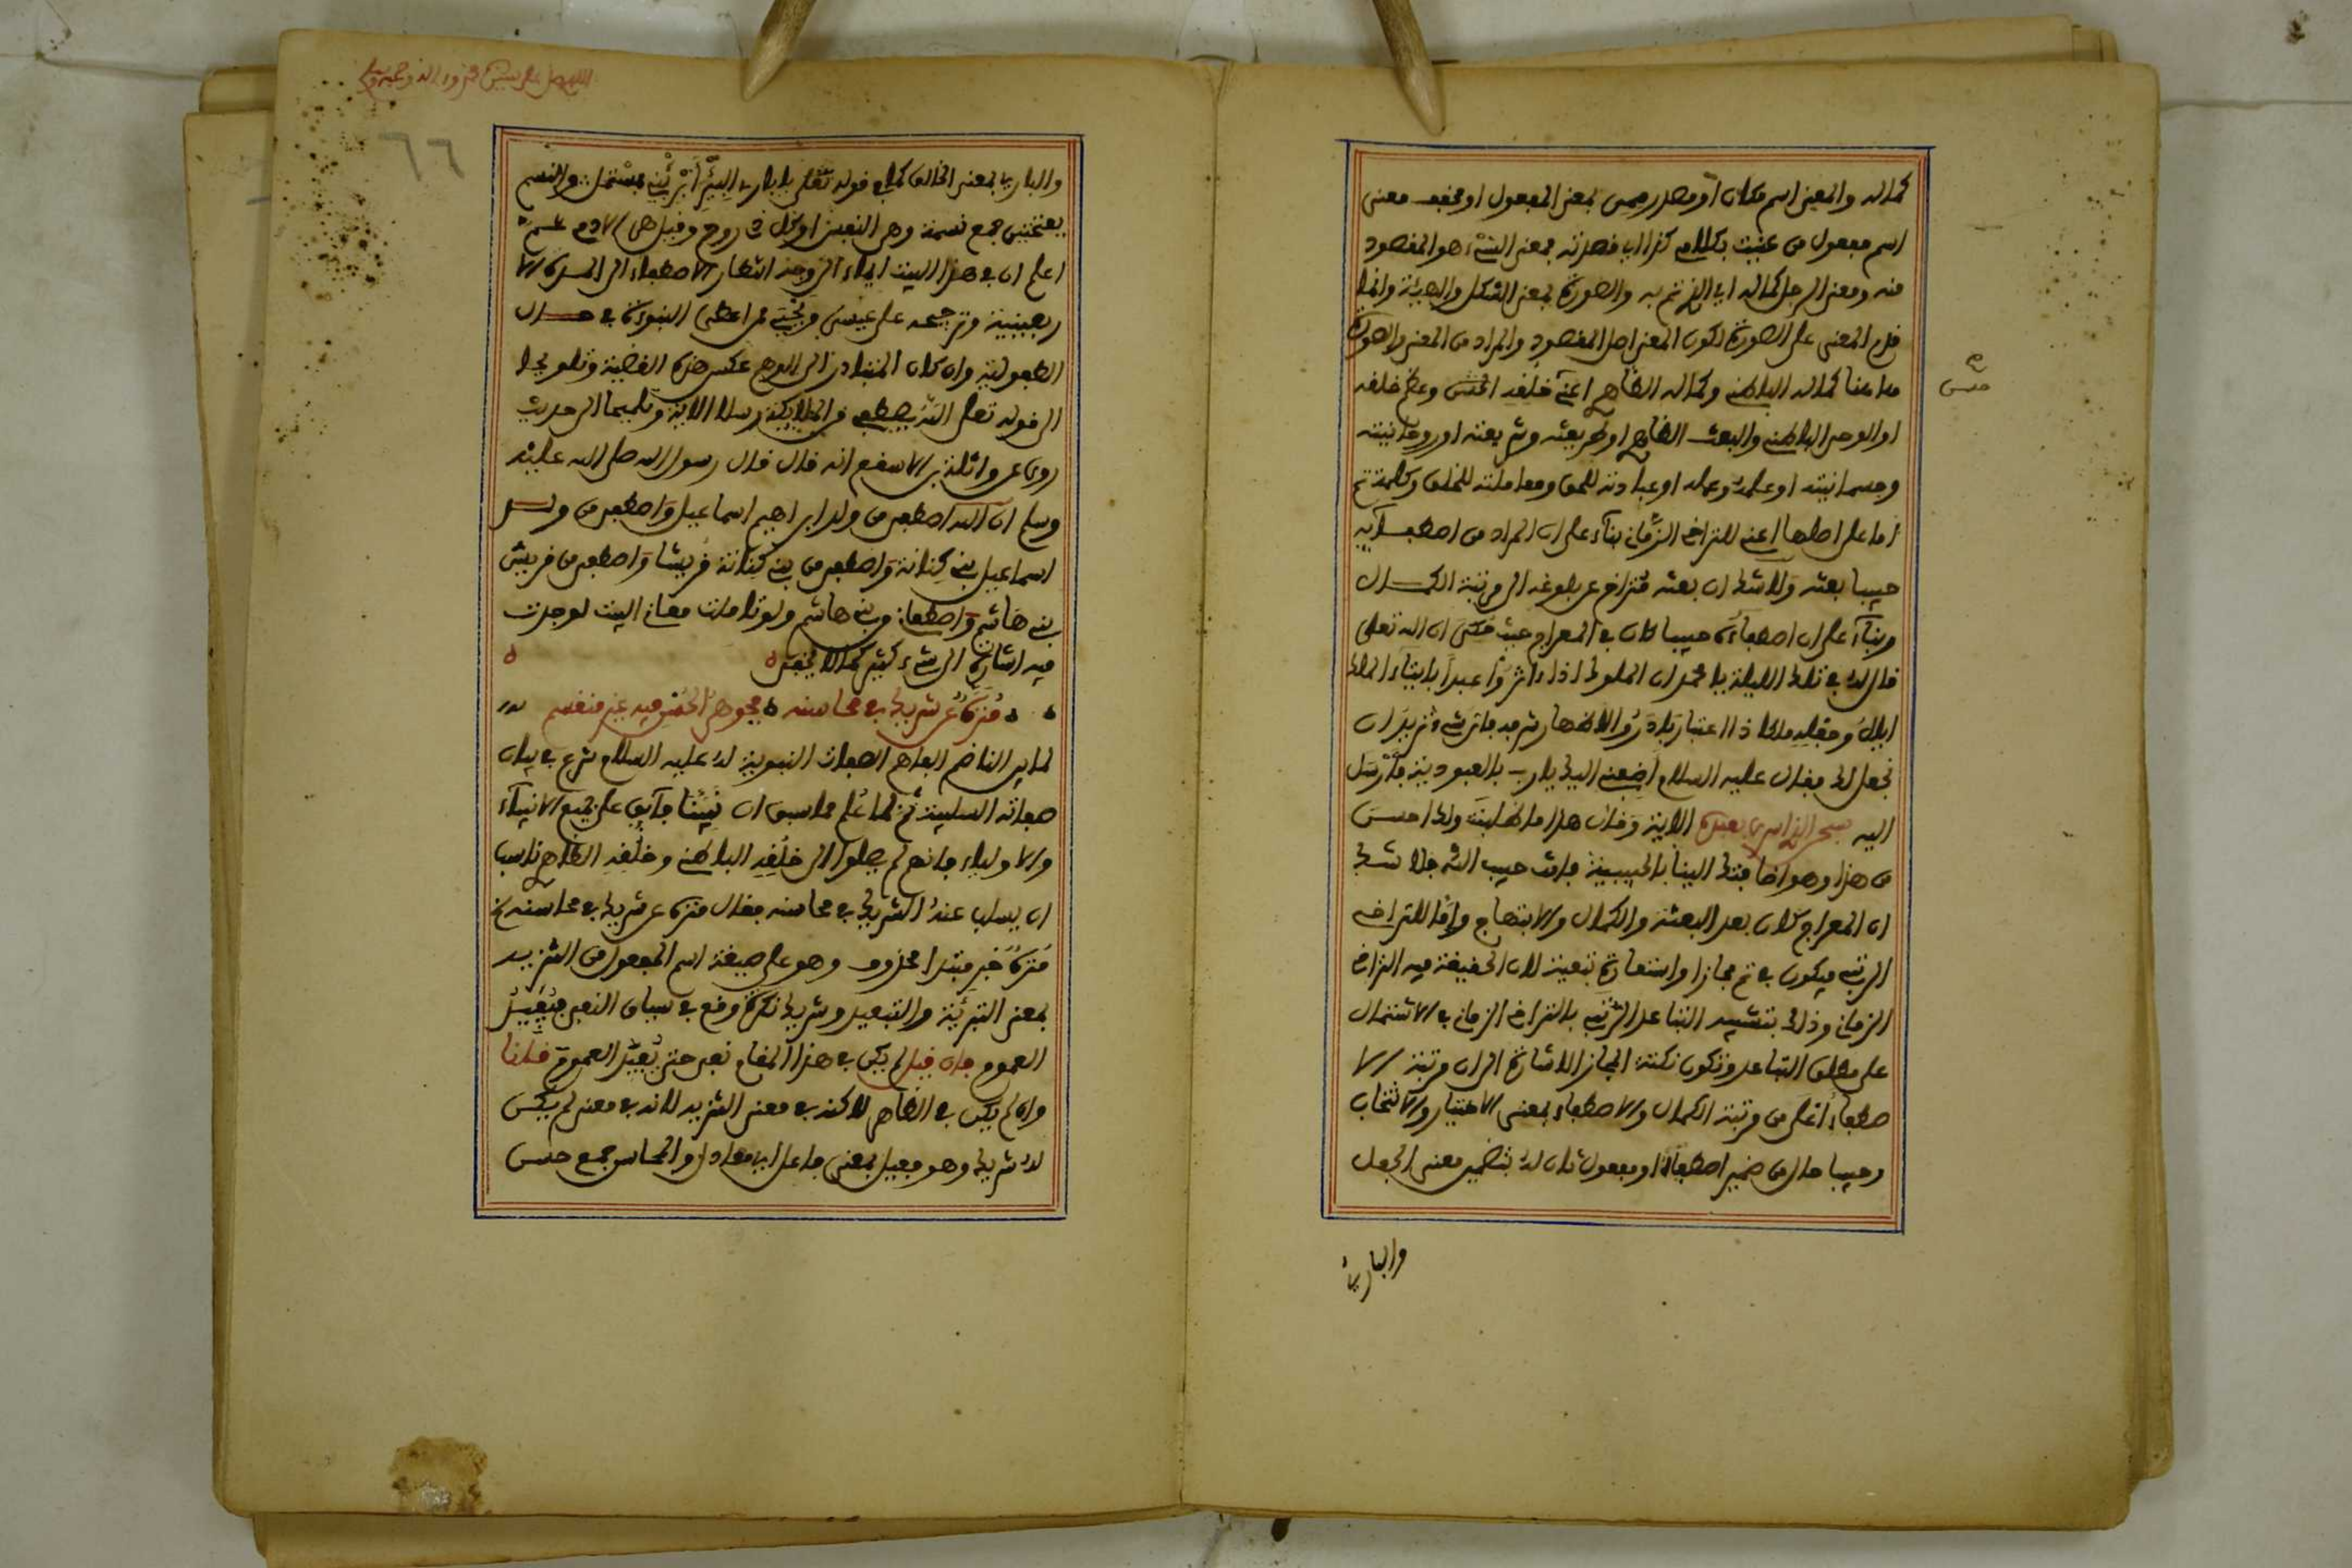 كماله والمعنى اسم مكان او مصدر ميمى بمعنى المفعول او مخفف معنى
اسم مفعول من عنيت بكلامي كذا اي قصدته بمعنى الشيء هو المقصود
منه ومعنى الرجل كماله اي الذي تم به والصورة بمعنى الشكل والهيئة وانما
قدم المعنى على الصورة لكون المعنى اصل المقصود والمراد من المعنى والصورة
هاهنا كماله الباطني وكماله الظاهر اعني خُلقه الحسن وعظم خلقه
او الوحي الباطني والبعث الظاهر او طريقته وشريعته او روحانيته
وجسمانيته او علمه وعمله او عبادته للحق ومعاملته للخلق وكلمة ثم
اما على اصلها اعني للتراخي الزماني بناء على ان المراد من اصطفائه
حبيبا بعثه ولا شك ان بعثه متراخ عن بلوغه الى مرتبة الكمال
وبناء على ان اصطفاءه حبيبا كان في المعراج حيث حكى ان الله تعلى
قال له في تلك الليلة يا محمد ان الملوك اذا اثروا عبدا بايتاء المال
نجعل لك فقال عليه السلام اضفني اليك يارب بالعبودية فارسل
اليه سبحن الذي اسرى بعبده الاية وقال هذا ما طلبته ولك احسن
من هذا وهو اضافتك الينا بالحبيبية فانت حبيب الله فلا شك
ان المعراج كان بعد البعثة والكمال والابتهاج واما للتراخي
الرتبي فيكون في ثم مجازا واستعارة تبعية لان الحقيقة فيه التراخي
الزماني وذلك بتشبيه التباعد الرتبي بالتراخي الزماني في الاشتمال
على مطلق التباعد وتكون نكتة المجاز الاشارة الى ان مرتبة الا
صطفاء اعلى من مرتبة الكمال والاصطفاء بمعنى الاختيار والانتخاب
وحبيبا حال من ضمير اصطفاه او مفعول ثان له بتضمير معنى الجعل
والباري
حسن
والباري بمعنى الخالق كما في قوله تعلى
بفتحتين جمع نسمة وهي النفس او كل ذي روح وقيل هي الادمي
اعلم ان في هذا البيت ايماء الى وجه انتظار الاصطفاء الى المدة الا
ربعينية وترجيحه على عيسى ويحيى في اعطى النبوة في حال
الطفولية وان كان المتبادر الى الوهم عكس هذه القضية وتلويحا
الى قوله تعلى الله يصطفي من الملايكة رسلا الاية وتلميحا الى حديث
روي عن واثلة بن الاسقع انه قال قال رسول الله صلى الله عليه
وسلم ان الله اصطفى من ولد ابراهيم اسماعيل واصطفى من ولد
اسماعيل بني كنانة واصطفى من بني كنانة قريشا واصطفى من قريش
بني هاشم واصطفاني من بني هاشم ولو تاملت معاني البيت لوجدت
فيه اشارة الى شيء كثير كما لا يخفى
منزه عن شريك في محاسنه فجوهر الحسن فيه غير منقسم
لما بين الناظم الفاهم الصفات الثبوتية له عليه السلام شرع في بيان
صفاته السلبية ثم لما علم مما سبق ان نبينا فايق على جميع الانبياء
والاولياء فانهم لم يصلوا الى خُلقه الباطني وخلقه الظاهر ناسبا
ان يسلب عنه الشريك في محاسنه فقال منزه عن شريك في محاسنه
منزه خبر مبتدا محذوف وهو على صيغة اسم المفعول من التنزيه
بمعنى التبرئة والتبعيد وشريك نكرة وقع في سياق النفي فيفيد
العموم فان قيل لم يكن في هذا المقام نفي حتى يفيد العموم قلنا
وان لم يكن في الظاهر لاكنه في معنى التنزيه لانه في معنى لم يكن
له شريك وهو فعيل بمعنى فاعل اي معادل والمحاسن جمع حسن
٦٦